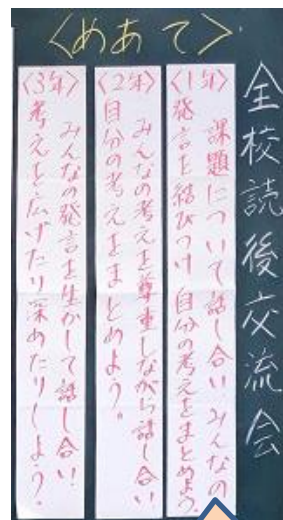 全校読後交流会
〈めあて〉
〈1年〉
課題について話し合い みんなの
発言を結びつけ 自分の考えをまとめよう。
〈2年〉
みんなの考えを尊重しながら話し合い
自分の考えをまとめよう。
〈3年〉
みんなの発言を生かして話し合い、
考えを広げたり深めたりしよう。